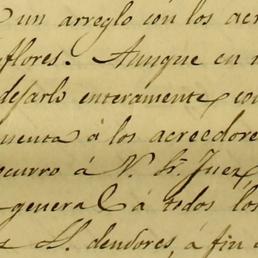 un arreglo con los acr
yflores. Aunque en
desarlo enteramente con
uenta á los acreedore
ocurro á V. Sr. Juez,
general á todos los
deudores, á fin d